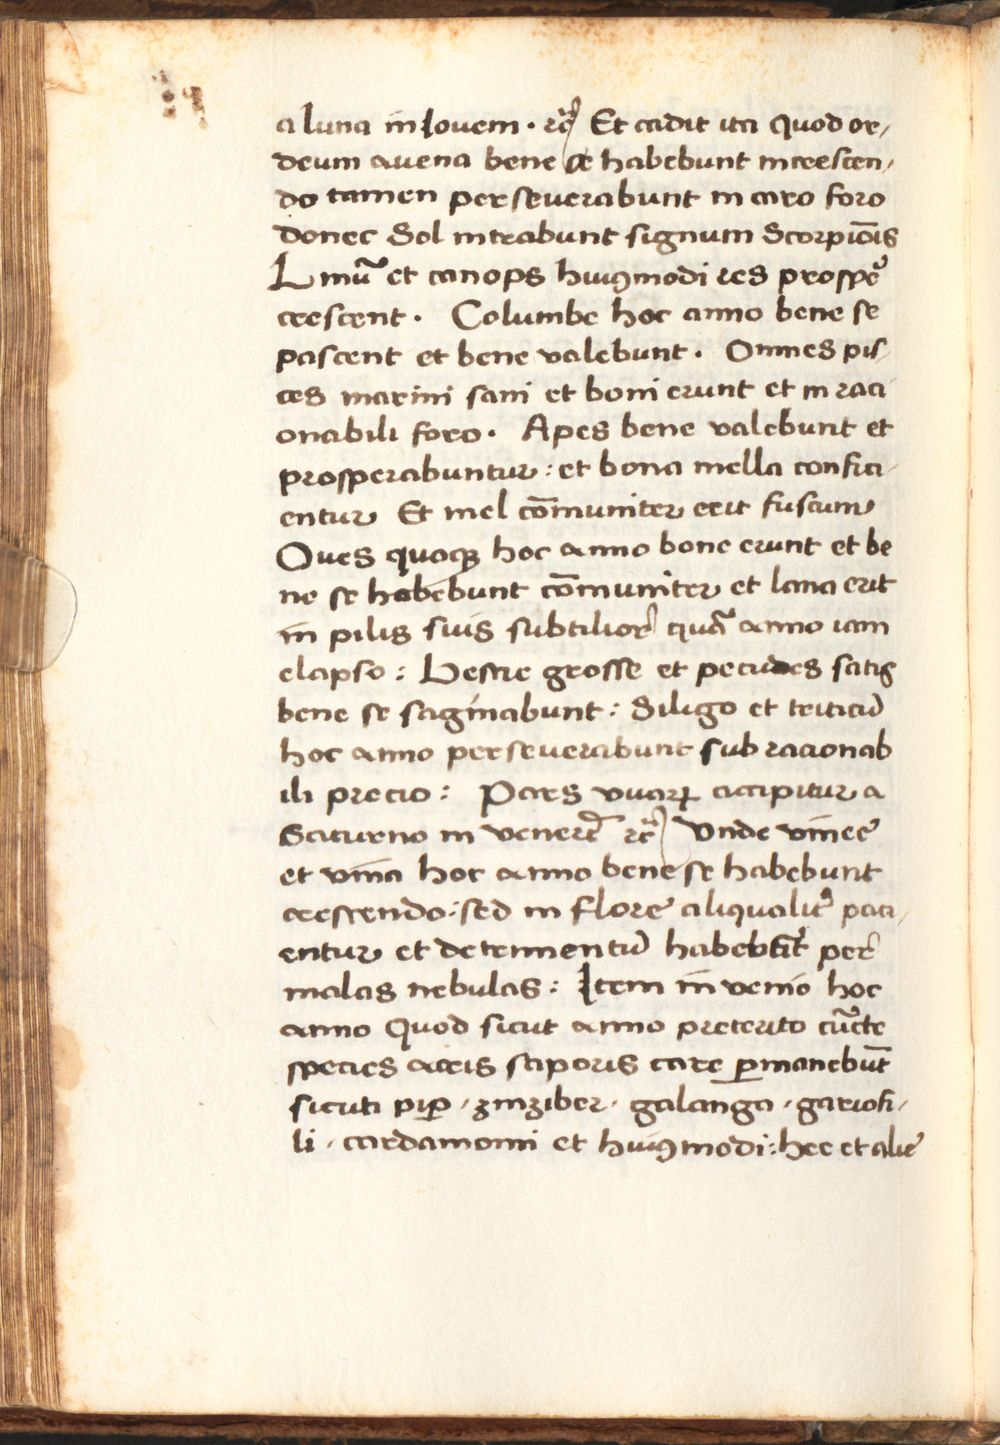 a luna in Iovem · rcͣ Et cadit ita Quod or,
deum auena bene se habebunt increscen,
do tamen perseuerabunt in caro foro
donec Sol intrabunt signum Scorpiōis
Linū et canops huiꝰmodi res prosꝑe
crescent · Columbe hoc anno bene se
pascent et bene valebunt · Omnes pis,
ces marini sani et boni erunt et in raci
onabili foro · Apes bene valebunt et
prosperabuntur : et bona mella confici,
entur Et mel cōmuniter erit fuscum
Oues quoqꝫ hoc anno bone erunt et be
ne se habebunt cōmuniter et lana erit
in pilis suis subtilior quā anno iam
elapso : Bestie grosse et pecudes satis
bene se saginabunt : Siligo et triticū
hoc anno perseuerabunt sub racionab
ili precio : Pars vuarꝝ accipitur a
Saturno in venerē rcͣ Vnde vinee
et vina hoc anno bene se habebunt
crescendo : sed in flore aliqualit̉ paci,
entur et detrimentū habebūt per
malas nebulas : Item in venio hoc
anno Quod sicut anno preterito cūcte
species acris saporis care ꝑmanebūt
sicuti piꝑ · zinziber · galanga · gariofi,
li · cardamomi et huiꝰmodi : hec et alie